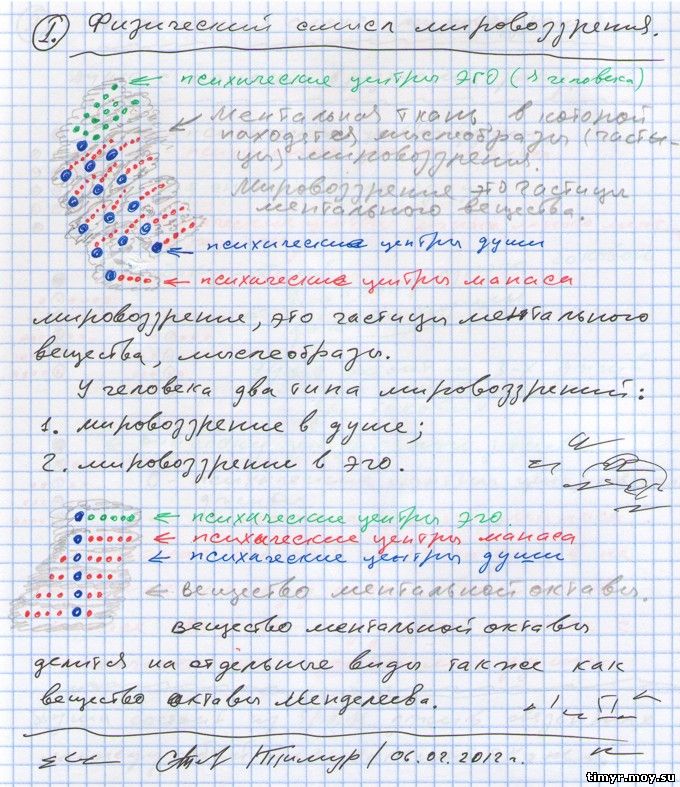 I. Физический смысл мировоззрения.
← психические центры эго (я человека)
← Ментальная ткань в которой
находятся мыслеобразы (части-
цы) мировоззрения.
Мировоззрение это частицы
ментального вещества.
← психические центры души
← психические центры манаса
мировоззрение, это частицы ментального
вещества, мыслеобразы.
У человека два типа мировоззрений:
1. мировоззрение в душе;
2. мировоззрение в эго.
← психические центры эго
← психические центры манаса
← психические центры души
← вещество ментальной октавы.
вещество ментальной октавы
делится на отдельные виды также как
вещество октавы Менделеева.
Тимур / 06.02.2012 г.
timyr.moy.su